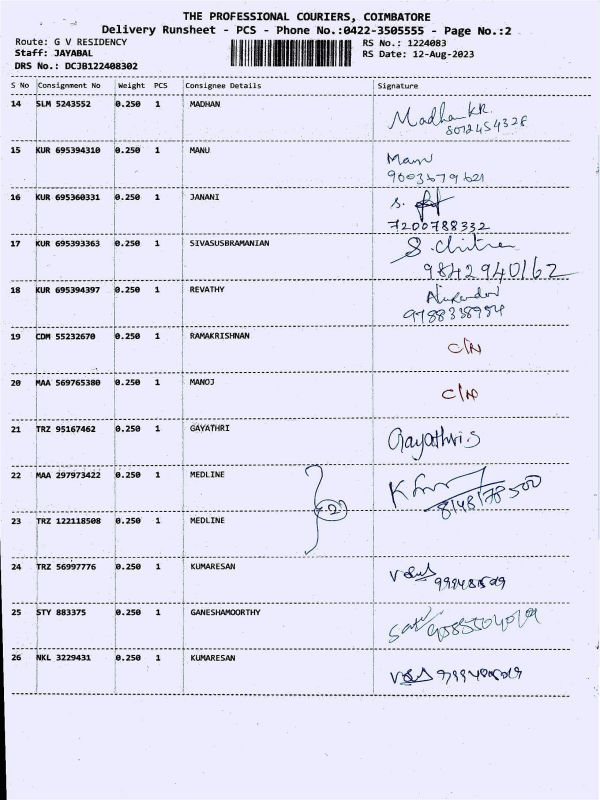 THE PROFESSIONAL COURIERS, COIMBATORE
Delivery Runsheet - PCS - Phone No.:0422-3505555 - Page No.:2
Route: G V RESIDENCY RS No.: 1224083
Staff: JAYABAL RS Date: 12-Aug-2023
DRS No.: DCJB122408302
S No Consignment No Weight PCS Consignee Details Signature
14 SLM 5243552 0.250 1 MADHAN Madhan KR.
8072454328
15 KUR 695394310 0.250 1 MANU Manu
9003679621
16 KUR 695360331 0.250 1 JANANI S.
7200788332
17 KUR 695393363 0.250 1 SIVASUSBRAMANIAN S. Chitra
9842940162
18 KUR 695394397 0.250 1 REVATHY
9788338984
19 CDM 55232670 0.250 1 RAMAKRISHNAN C/N
20 MAA 569765380 0.250 1 MANOJ C/N
21 TRZ 95167462 0.250 1 GAYATHRI Gayathri S
22 MAA 297973422 0.250 1 MEDLINE
8148178500
23 TRZ 122118508 0.250 1 MEDLINE
24 TRZ 56997776 0.250 1 KUMARESAN
25 STY 883375 0.250 1 GANESHAMOORTHY
26 NKL 3229431 0.250 1 KUMARESAN